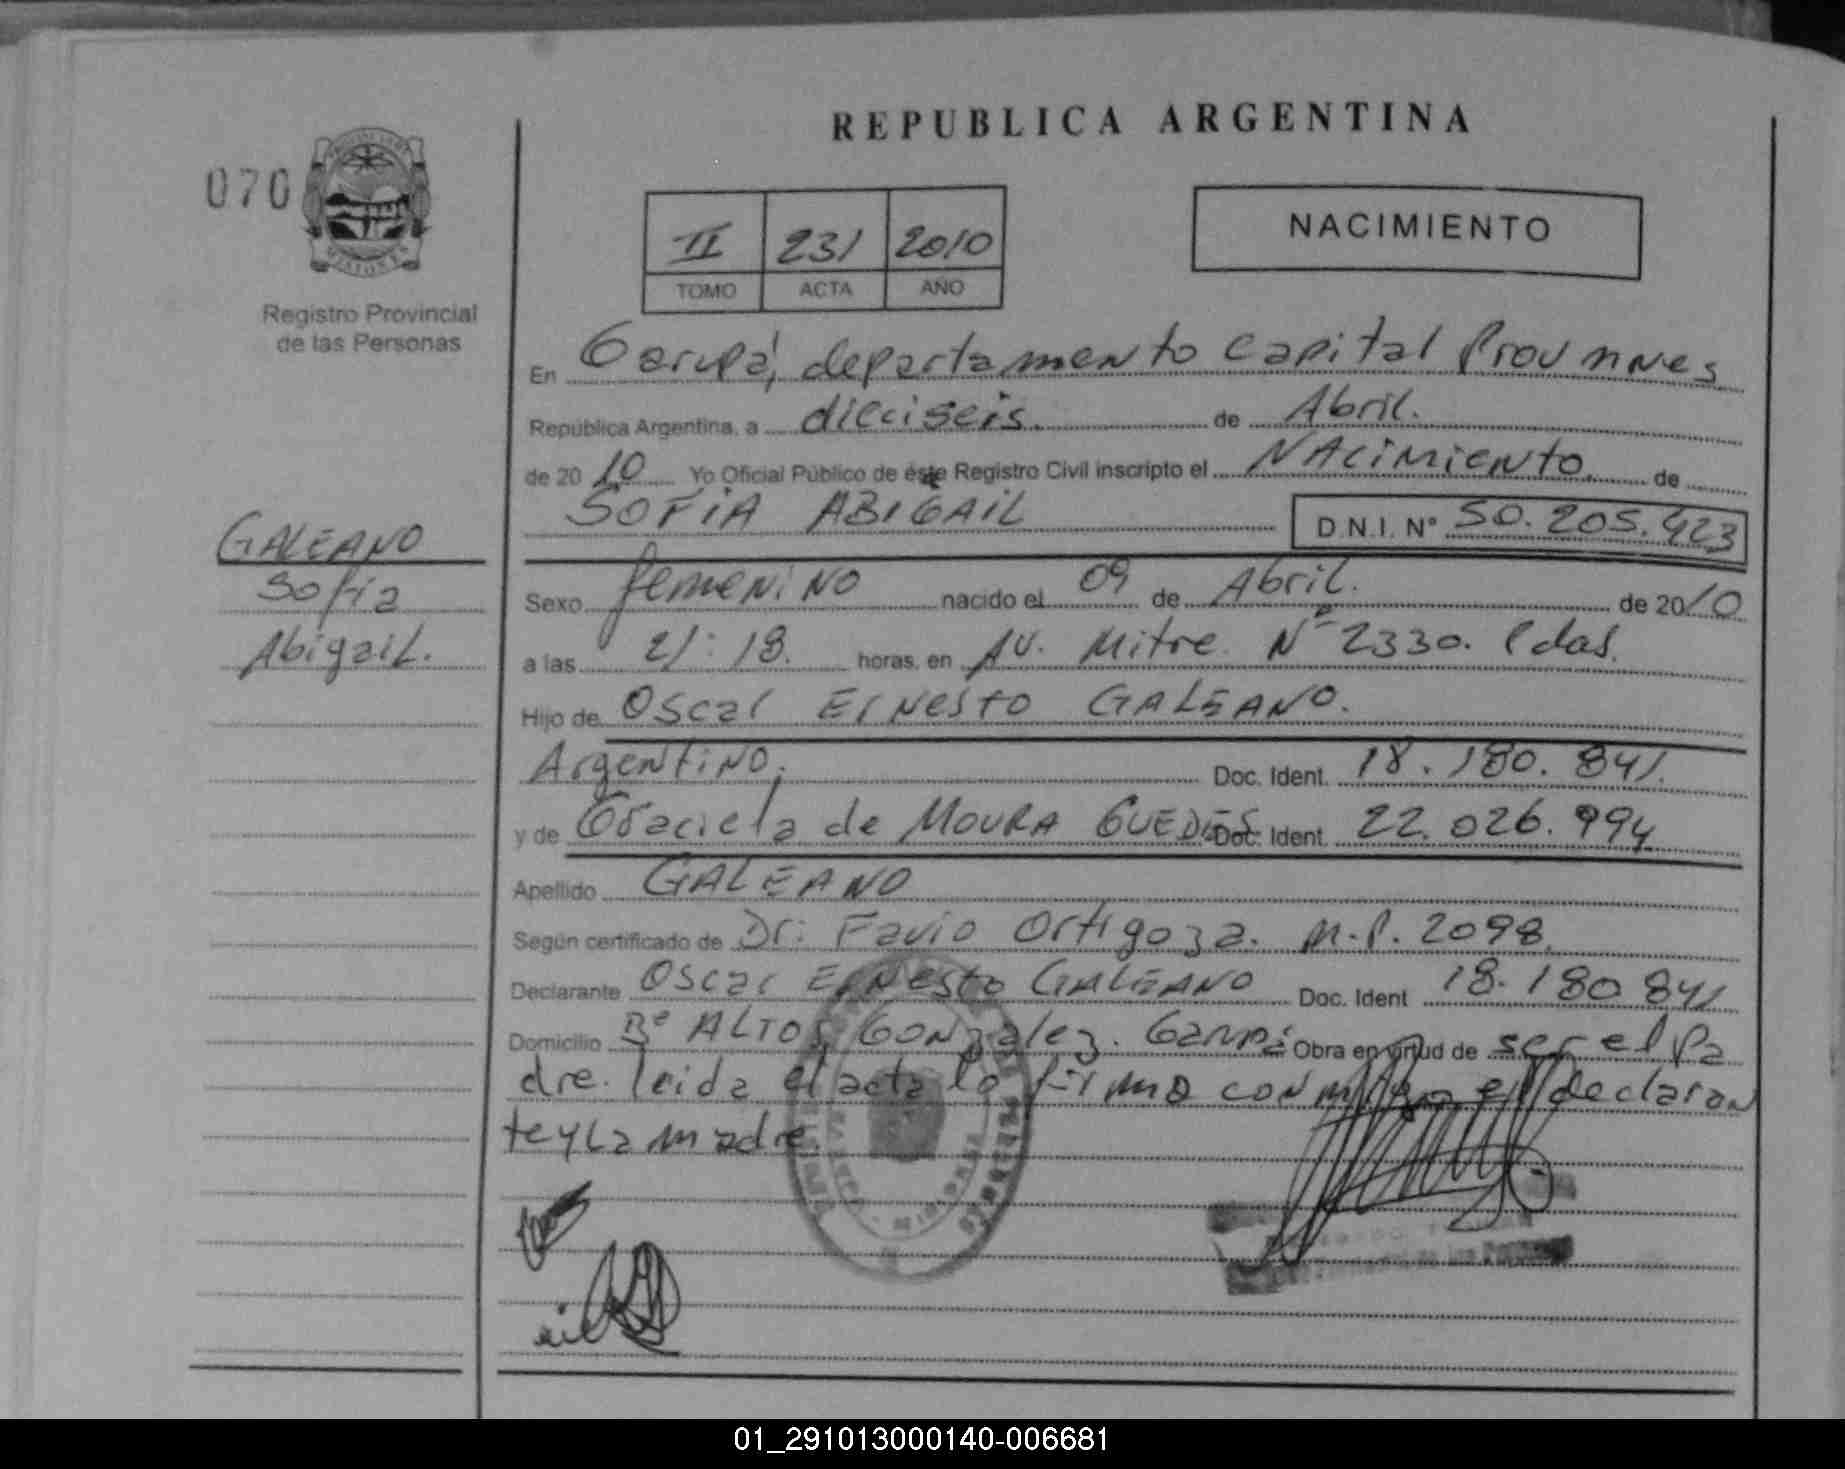 REPUBLICA ARGENTINA
070
NACIMIENTO
II 231 2010
TOMO ACTA AÑO
Registro Provincial
de las Personas
En Garupá, departamento Capital Prov mnes
República Argentina, a dieciseis. de Abril.
de 20 10 Yo Oficial Público de éste Registro Civil inscripto el NACimiENto. de
SOFIA ABIGAIL D.N.I. N° 50.205.423
GALEANO
Sofia
Abigail.
Sexo femeNiNo nacido el 09 de Abril. de 20 10
a las 21:18. horas, en AV. Mitre. Nº 2330. Pdas.
Hijo de Oscar ErNesto GALEANO.
ArgentiNo. Doc. Ident. 18.180.841.
y de Graciela de MOURA GUEDES Doc. Ident. 22.026.994
Apellido GALEANO
Según certificado de Dr. Favio Ortigoza. M.P. 2098.
Declarante Oscar ErNesto GALEANO Doc. Ident 18.180 841
Domicilio Bº ALTOS GONzalez. Garupá Obra en virtud de ser el Pa
dre. leida el acta la firma conmigo el declaran
te y La madre.
01_291013000140-006681